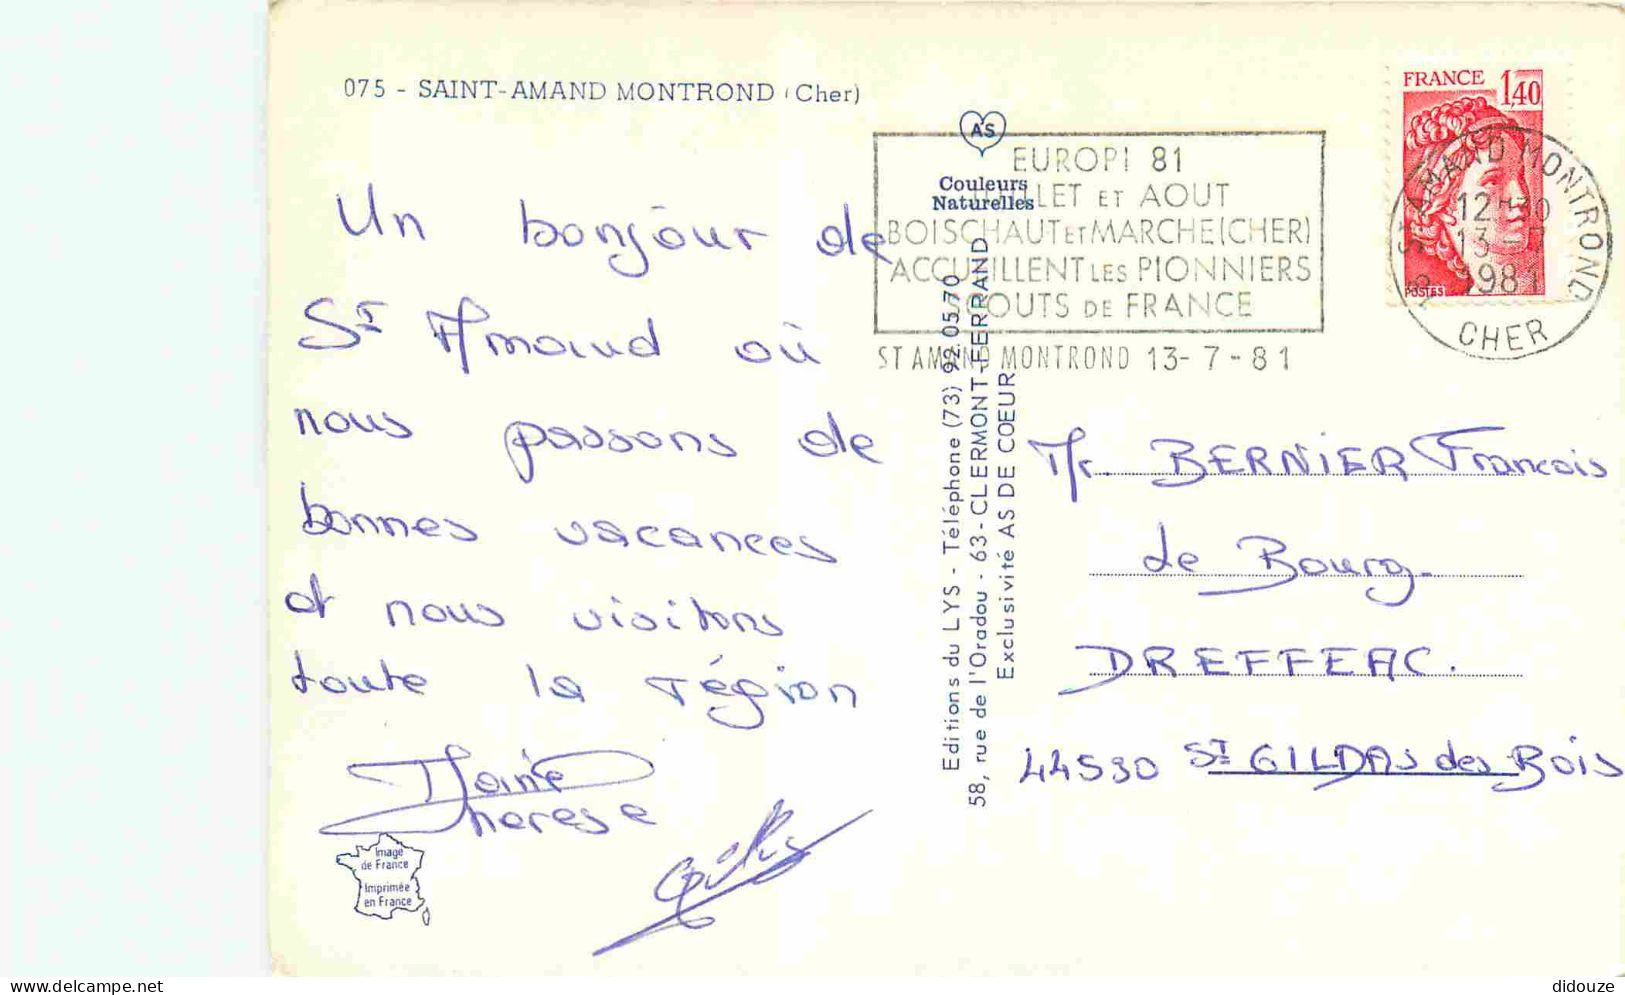 075 - SAINT-AMAND MONTROND (Cher)
A'S
Couleurs
Naturelles
EUROPI 81
ET AOUT
BOISCHAUT ET MARCHE (CHER)
LES PIONNIERS
DE FRANCE
ST AMAND MONTROND 13-7-81
FRANCE 1,40
POSTES
18 ST AMAND MONTROND
12H30
13-7
1981
CHER
Un bonjour de
St Amand où
nous passons de
bonnes vacances
et nous visitons
toute la région
Marie
Therese
Image
de France
Imprimée
en France
Editions du LYS - Téléphone (73) 92.05.70
58, rue de l'Oradou - 63 - CLERMONT-FERRAND
Exclusivité AS DE CŒUR
Mr. BERNIER Francois
Le Bourg
DREFFEAC.
44530 St GILDAS des Bois
delcampe.net
didouze